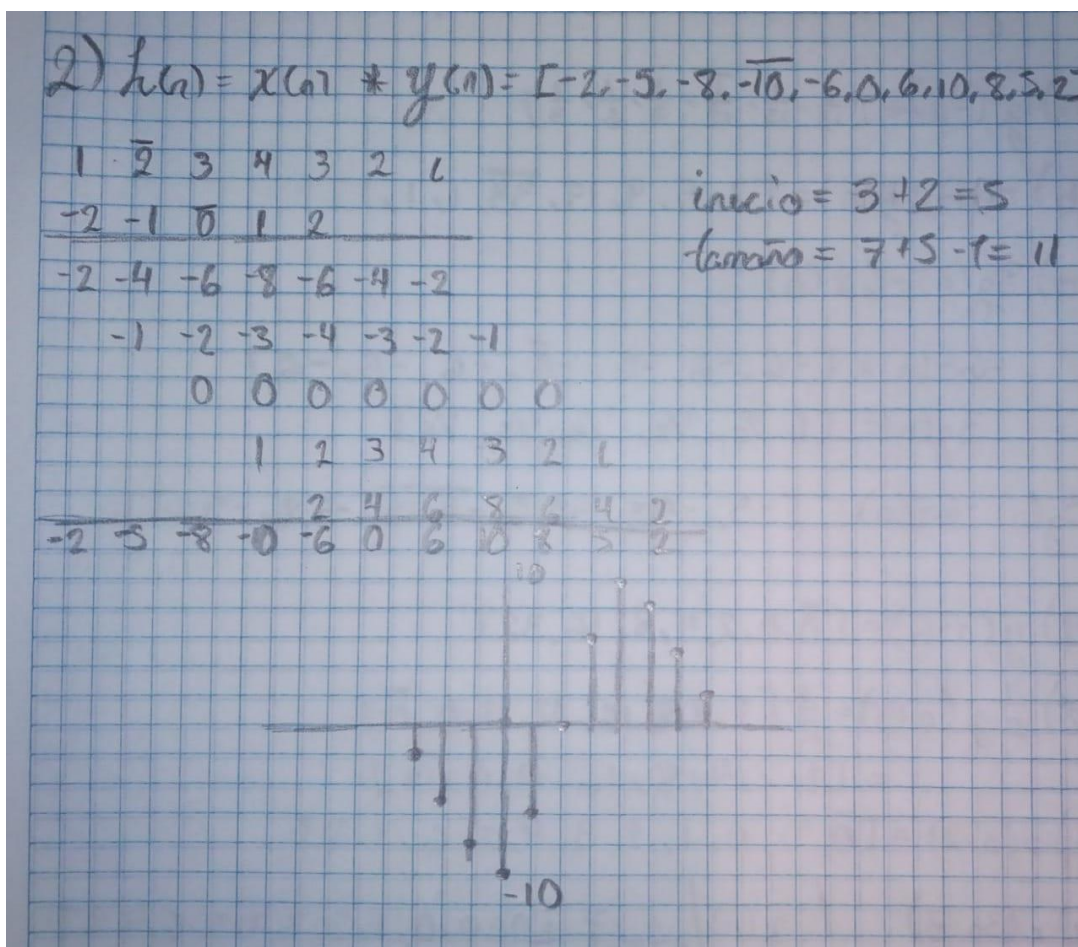 2) h(n) = x(n) * y(n) = [-2, -5, -8, -1̅0̅, -6, 0, 6, 10, 8, 5, 2]
1 2̅ 3 4 3 2 1
-2 -1 0̅ 1 2
inicio = 3 + 2 = 5
tamaño = 7 + 5 - 1 = 11
-2 -4 -6 -8 -6 -4 -2
-1 -2 -3 -4 -3 -2 -1
0 0 0 0 0 0 0
1 2 3 4 3 2 1
2 4 6 8 6 4 2
-2 -5 -8 -10 -6 0 6 10 8 5 2
10
-10